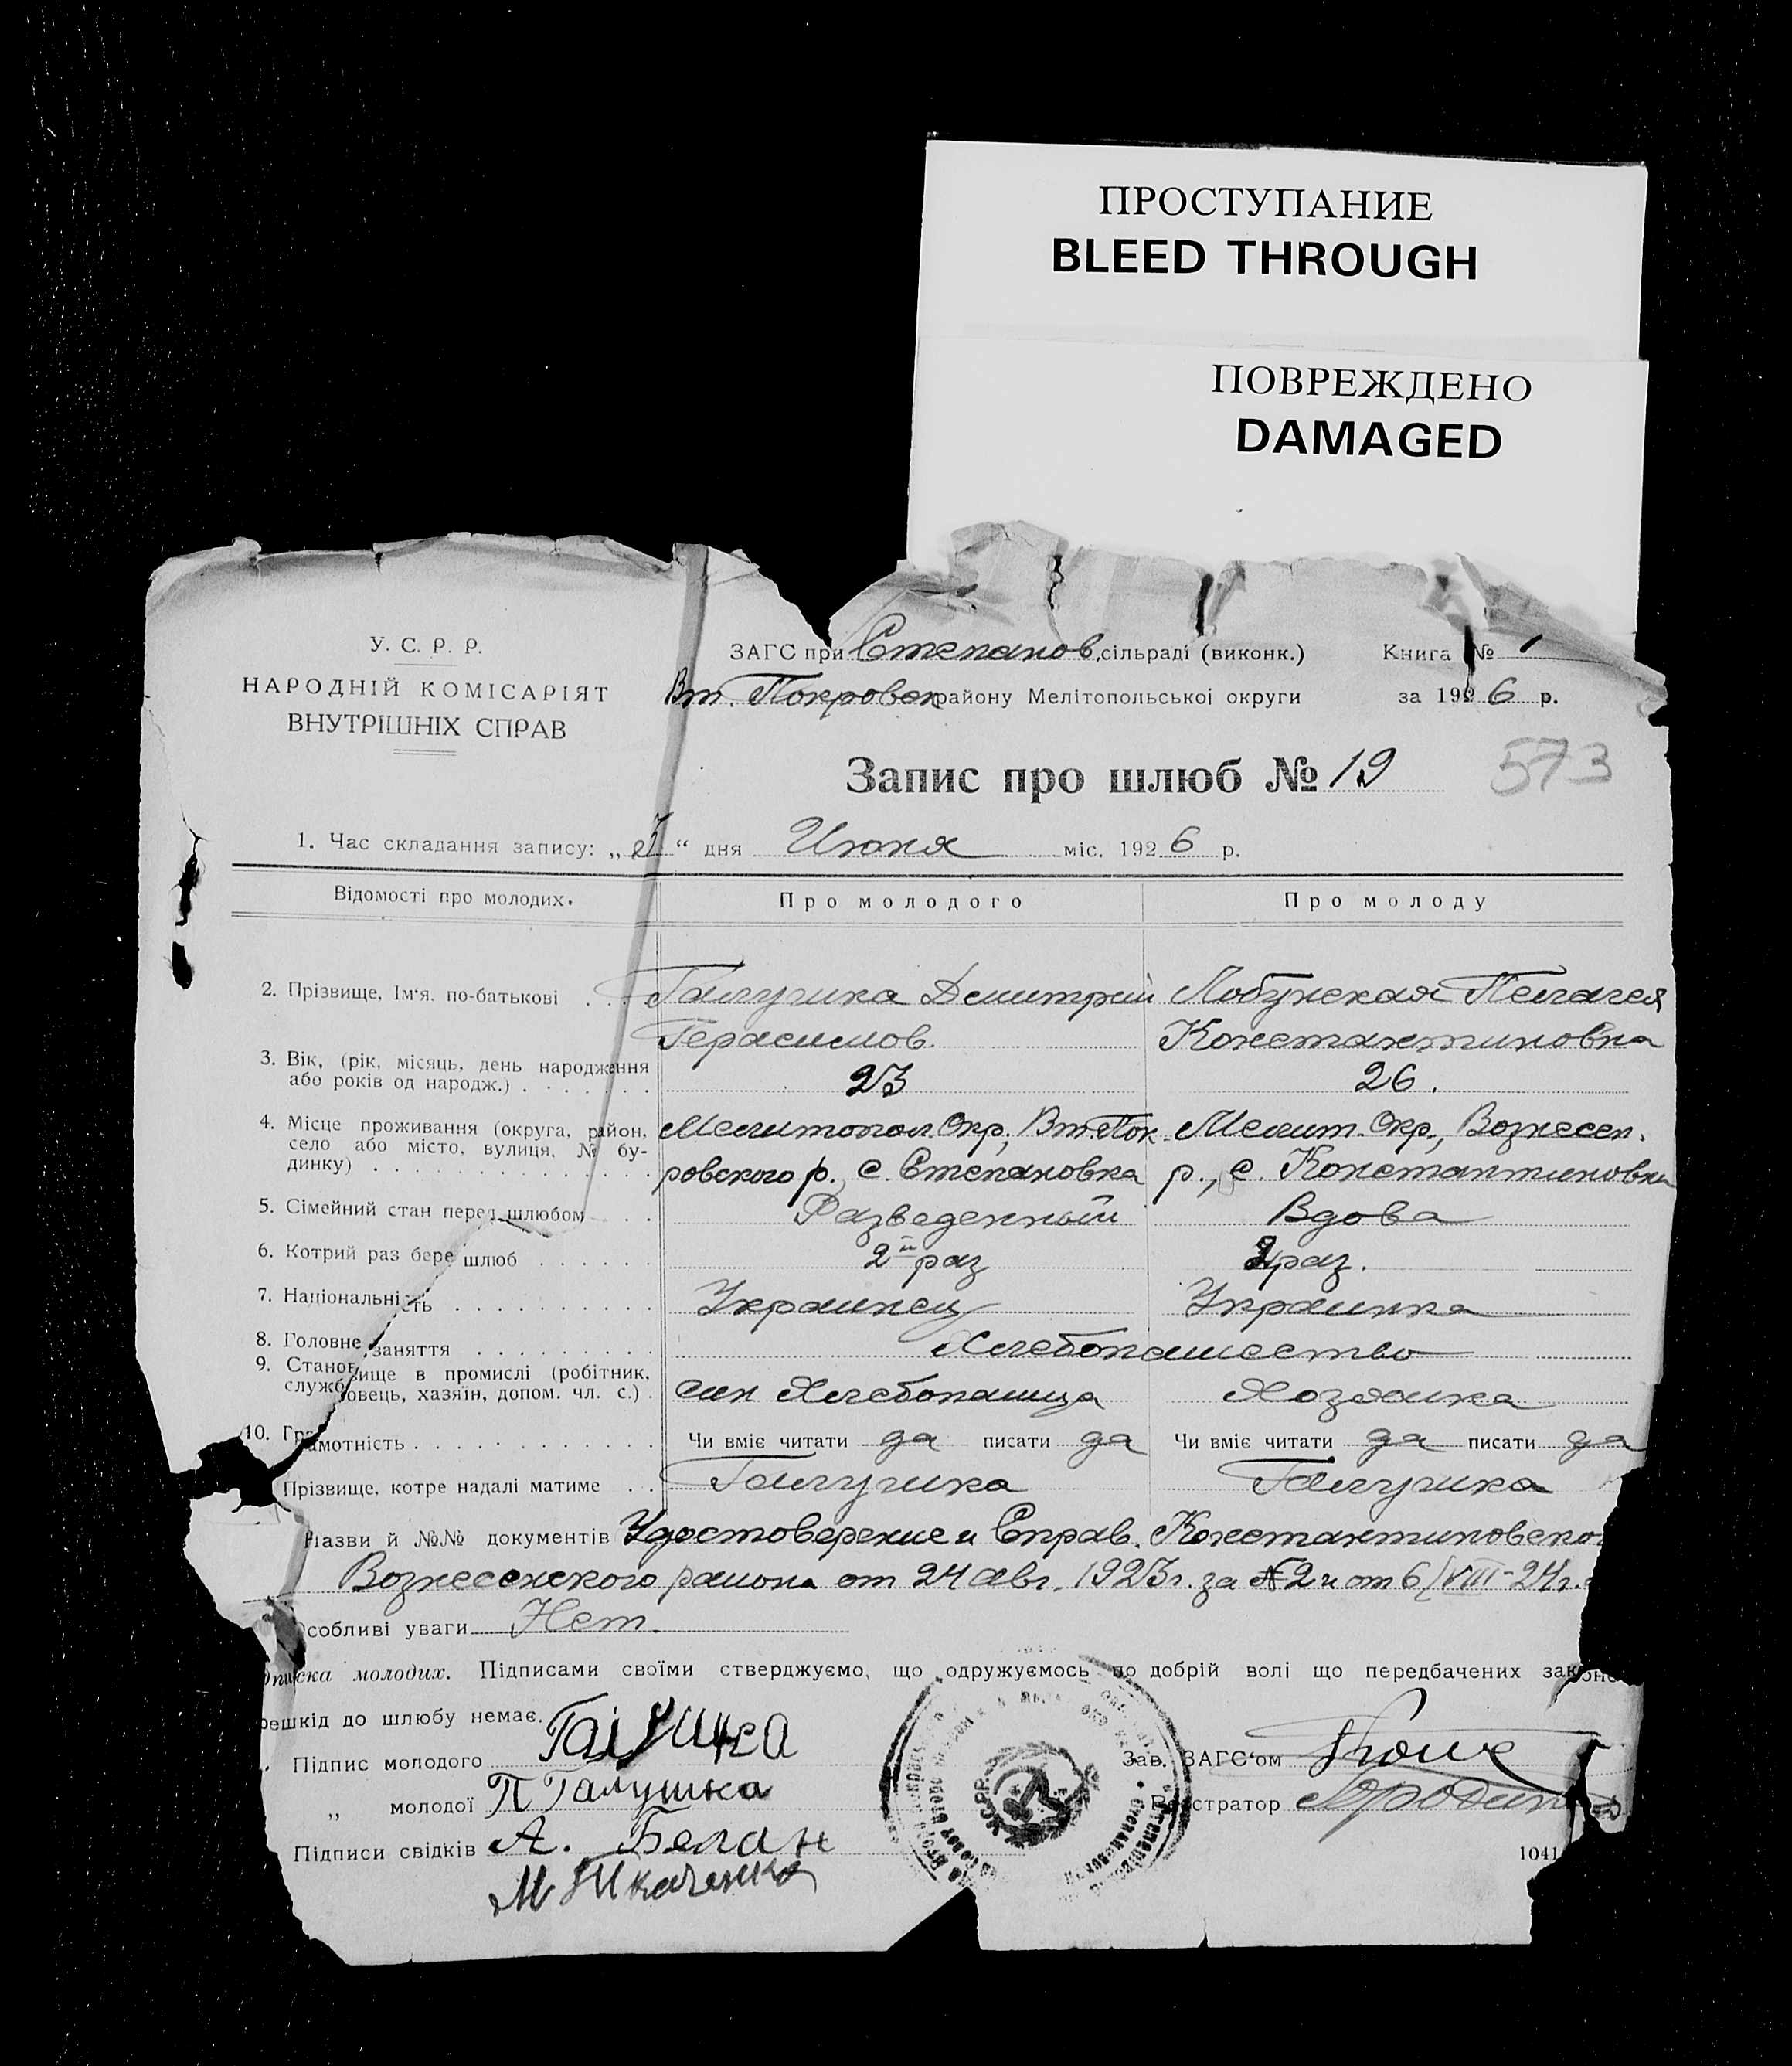 ПРОСТУПАНИЕ
BLEED THROUGH
ПОВРЕЖДЕНО
DAMAGED
У. С. Р. Р.
НАРОДНІЙ КОМІСАРІЯТ
ВНУТРІШНІХ СПРАВ
ЗАГС при Степанов. сільраді (виконк.)
Вт. Покровск району Мелітопольської округи
Книга № 1
за 1926 р.
Запис про шлюб № 19
573
1. Час складання запису: „ “ дня Июня міс. 1926 р.
Відомості про молодих. Про молодого Про молоду
2. Прізвище, Ім'я. по-батькові . . Галушка Демитрий Лобунская Пелагея
Герасимов. Константиновна
3. Вік, (рік, місяць, день народження
або років од народж.) . . . . . . . 23 26.
4. Місце проживання (округа, район, Мелитопол. Окр., Вт. Пок Мелит. Окр., Вознесен.
село або місто, вулиця, № бу-
динку) . . . . . . . . . . . . . ровского р. с. Степановка р., с. Константиновка
5. Сімейний стан перед шлюбом . . Разведенный Вдова
6. Котрий раз бере шлюб . . . . . . 2й раз 2 раз.
7. Національність . . . . . . . . . . Украинец Украинка
8. Головне заняття . . . . . . . . . Хлебопашество
9. Становище в промислі (робітник,
службовець, хазяїн, допом. чл. с.) . сын Хлебопашца Хозяйка
10. Грамотність . . . . . . . . . . . . Чи вміє читати да писати да Чи вміє читати да писати да
Прізвище, котре надалі матиме . . Галушка Галушка
Назви й №№ документів Удостоверение и Справ. Константиновско
Вознесенского района от 24 авг. 1923 г. за № 2 и от 6/VIII-24 г.
Особливі уваги Нет.
дписка молодих. Підписами своїми стверджуємо, що одружуємось по добрій волі що передбачених законо
решкід до шлюбу немає.
Підпис молодого Галушка
„ молодої П Галушка
Підписи свідків А. Белан
М Ткаченко
Зав. ЗАГС'ом
Реєстратор
УСРР
1041